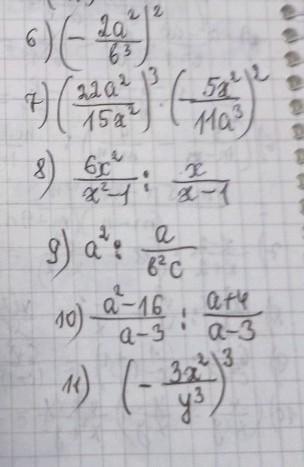 6) (- 2a²/b³)²
7) (22a²/15x²)³ · (- 5x²/11a³)²
8) 6x²/x²-1 : x/x-1
9) a² : a/b²c
10) a²-16/a-3 : a+4/a-3
11) (- 3x²/y³)³